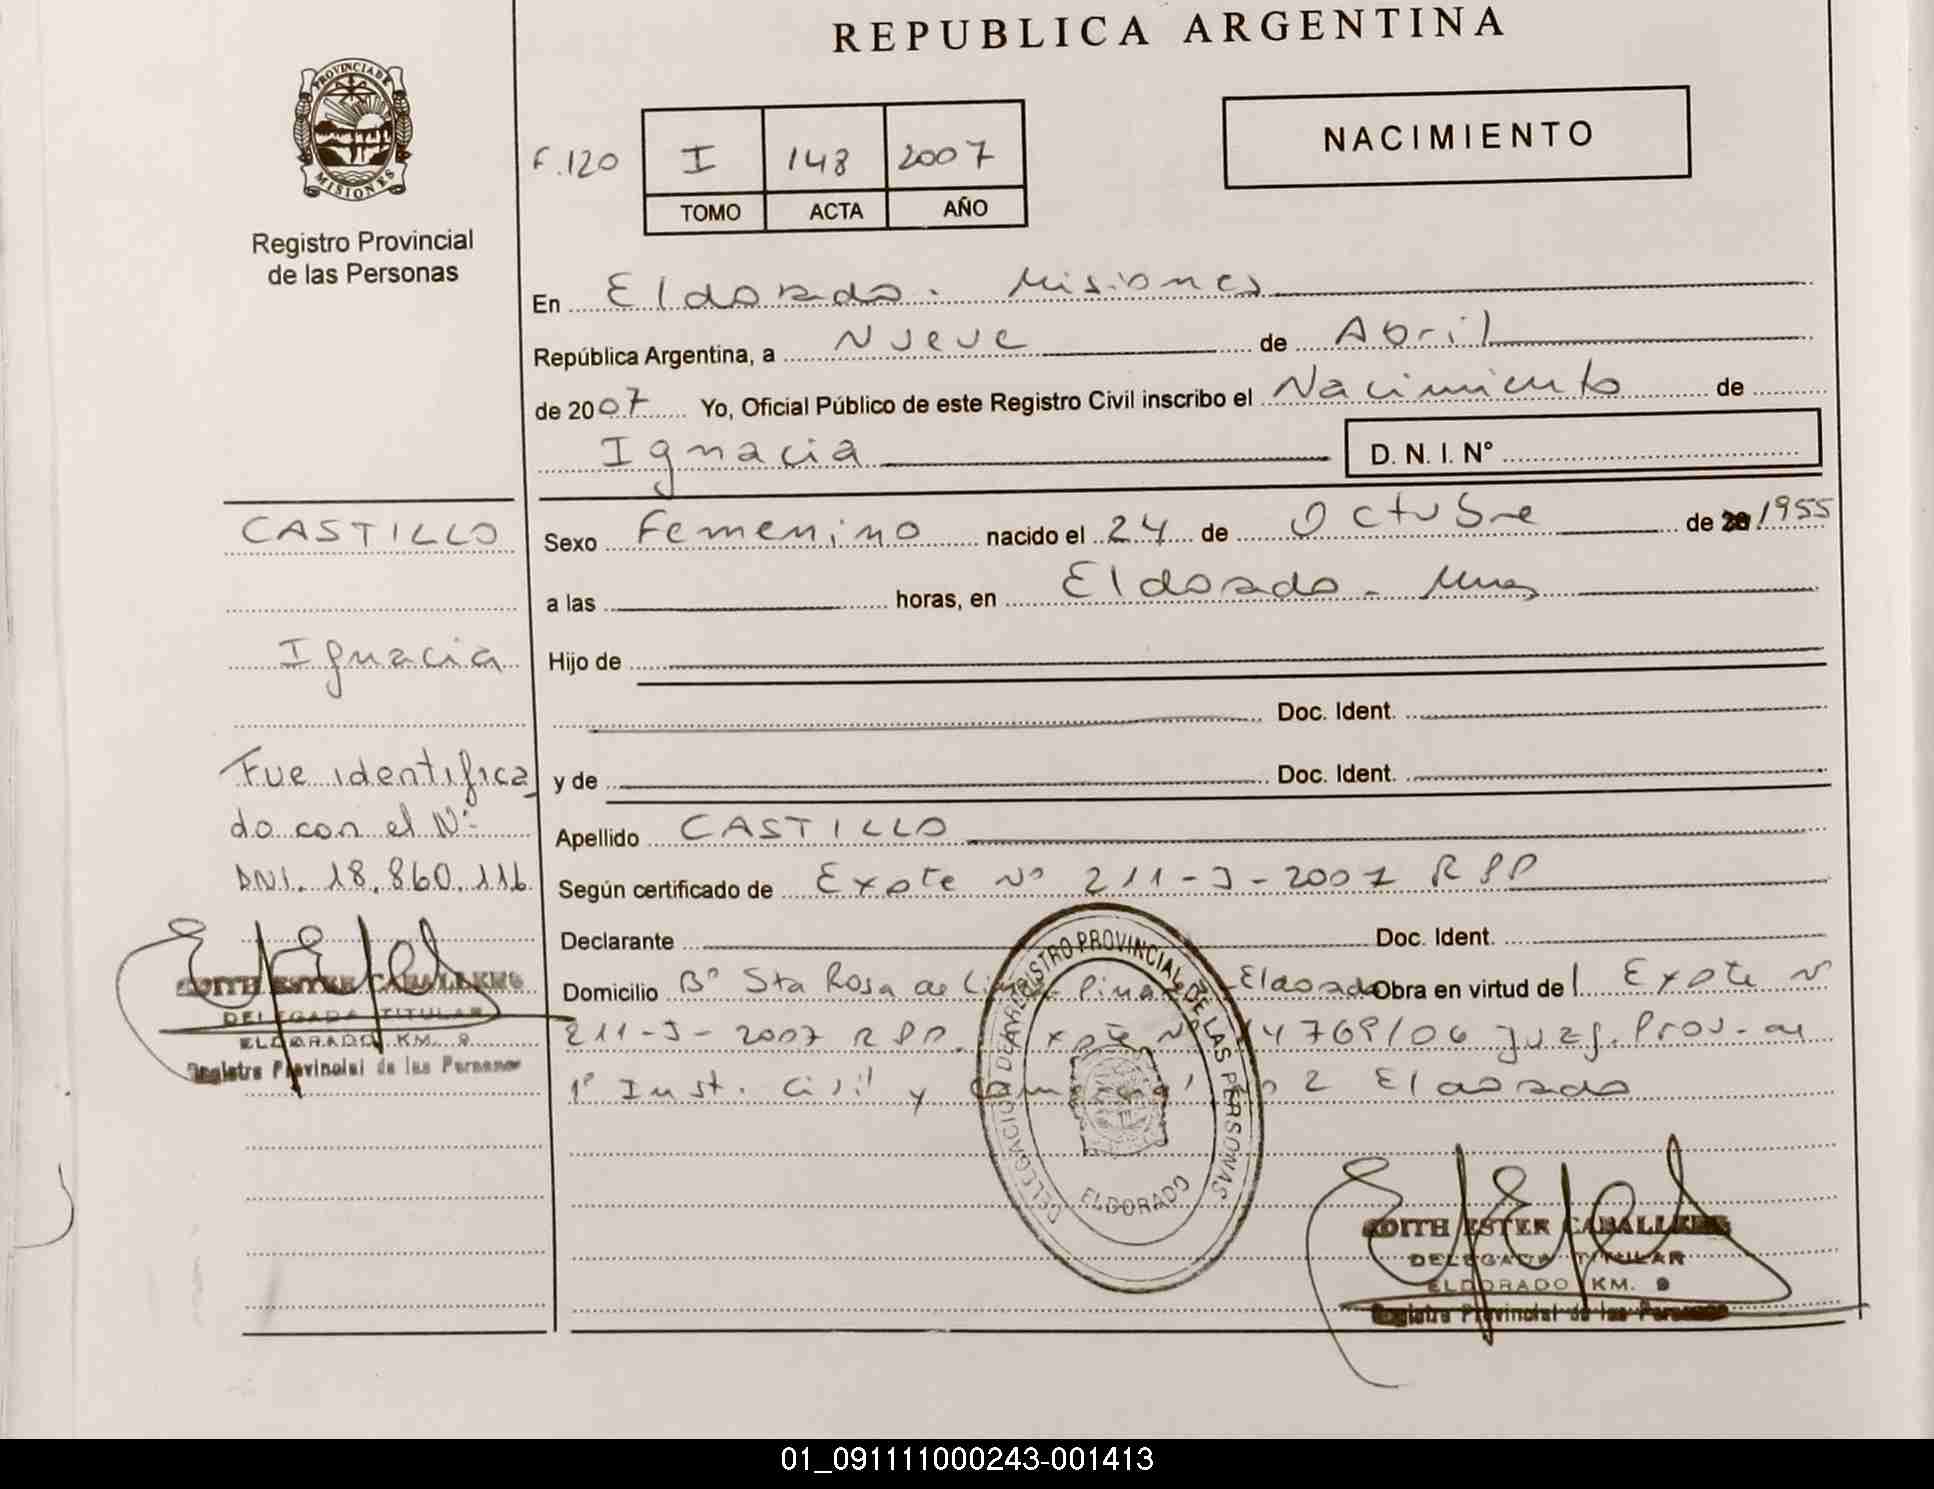 REPUBLICA ARGENTINA
PROVINCIA DE
MISIONES
Registro Provincial
de las Personas
F.120 I 148 2007
TOMO ACTA AÑO
NACIMIENTO
En Eldorado. Misiones
República Argentina, a Nueve de Abril
de 2007 Yo, Oficial Público de este Registro Civil inscribo el Nacimiento de
Ignacia D. N. I. N°
CASTILLO
Ignacia
Fue identifica
do con el N°
DNI. 18.860.116
EDITH ESTER CABALLERO
DELEGADA TITULAR
ELDORADO KM. 9
Registro Provincial de las Personas
Sexo Femenino nacido el 24 de Octubre de 20 1955
a las horas, en Eldorado - Mnes
Hijo de
Doc. Ident.
y de Doc. Ident.
Apellido CASTILLO
Según certificado de Expte N° 211-J-2007 RPP
Declarante Doc. Ident.
Domicilio B° Sta Rosa de Eldorado Obra en virtud de Expte N°
211-J-2007 RPP. Expte N° 14769/06 Juzg. Prov. de
1° Inst. Civil y 2 Eldorado
DELEGACION REGISTRO PROVINCIAL DE LAS PERSONAS
ELDORADO
EDITH ESTER CABALLERO
DELEGADA TITULAR
ELDORADO KM. 9
Registro Provincial de las Personas
01_091111000243-001413